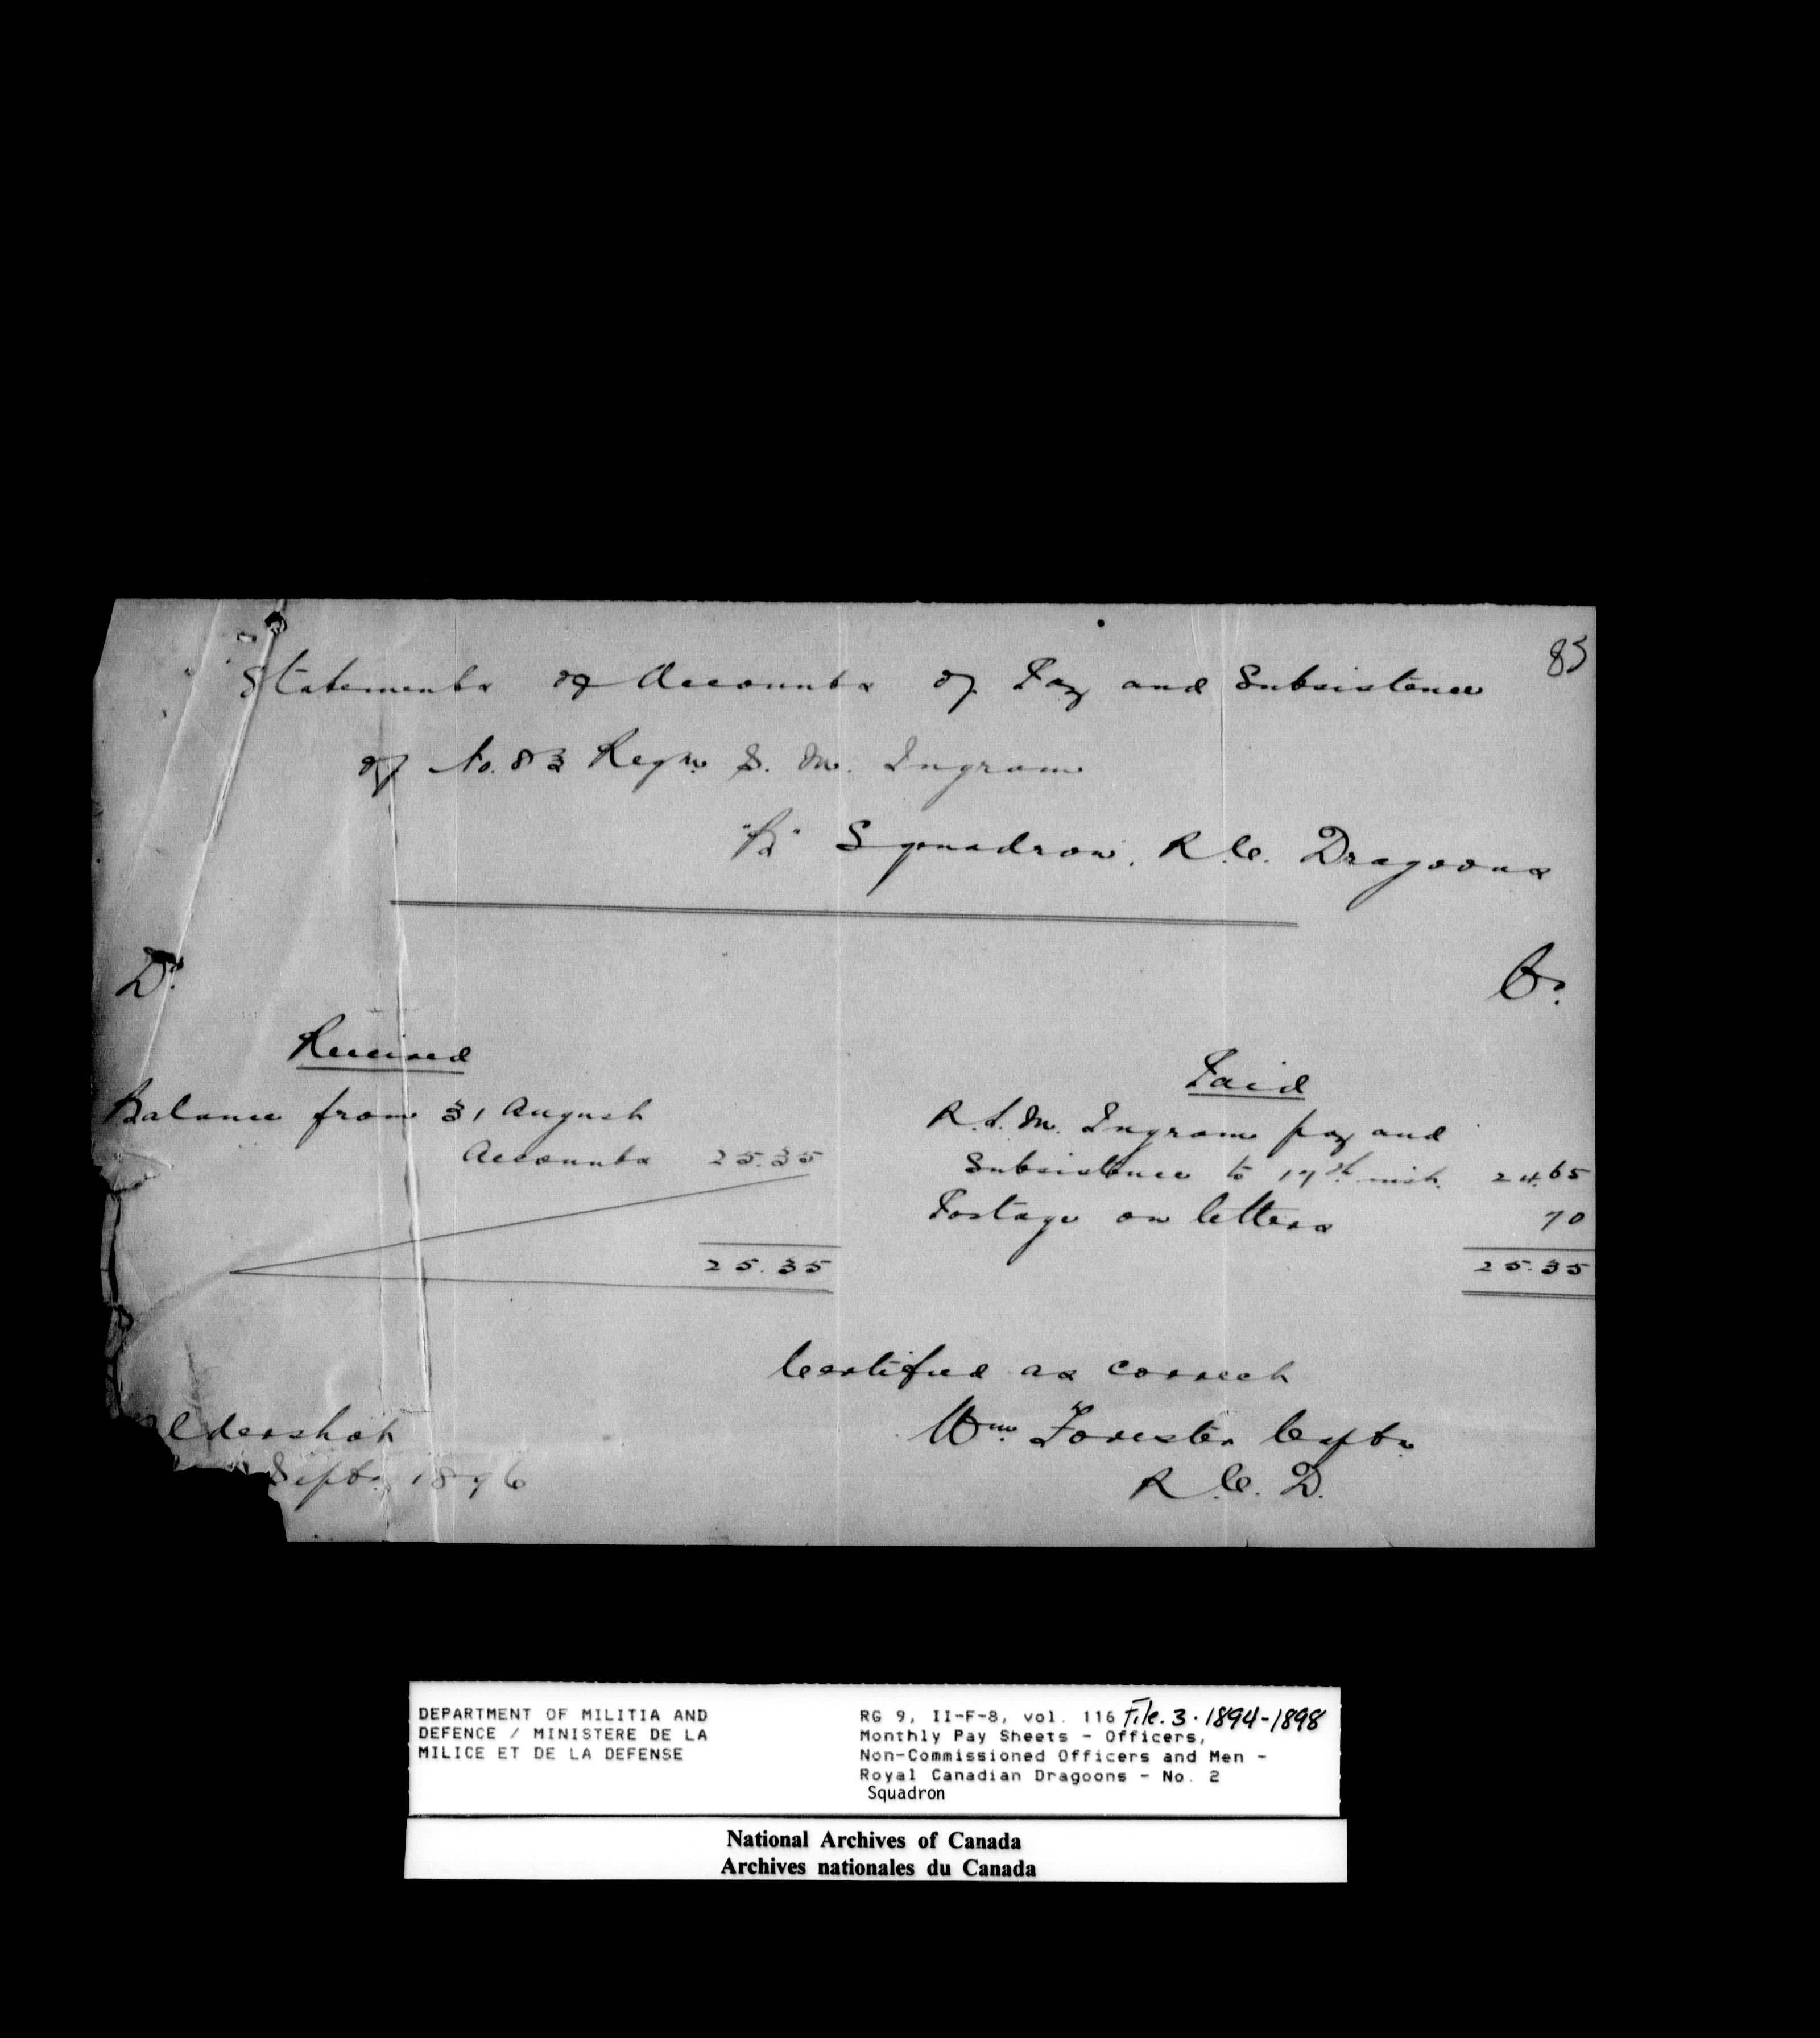 85
Statements of Accounts of Pay and Subsistence
of No. 83 Regm. S. M. Ingram
"B" Squadron. R.C. Dragoons
Dr.
Cr.
Received
Balance from 31 August
Accounts 25.35
25.35
Paid
R.S.M. Ingram pay and
Subsistence to 17th inst. 24.65
Postage on letters 70
25.35
Certified as correct
Wm. Forester Captn
R.C.D.
ldershot
Septr. 1896
DEPARTMENT OF MILITIA AND
DEFENCE / MINISTERE DE LA
MILICE ET DE LA DEFENSE
RG 9, II-F-8, vol. 116 File. 3. 1894-1898
Monthly Pay Sheets - Officers,
Non-Commissioned Officers and Men -
Royal Canadian Dragoons - No. 2
Squadron
National Archives of Canada
Archives nationales du Canada